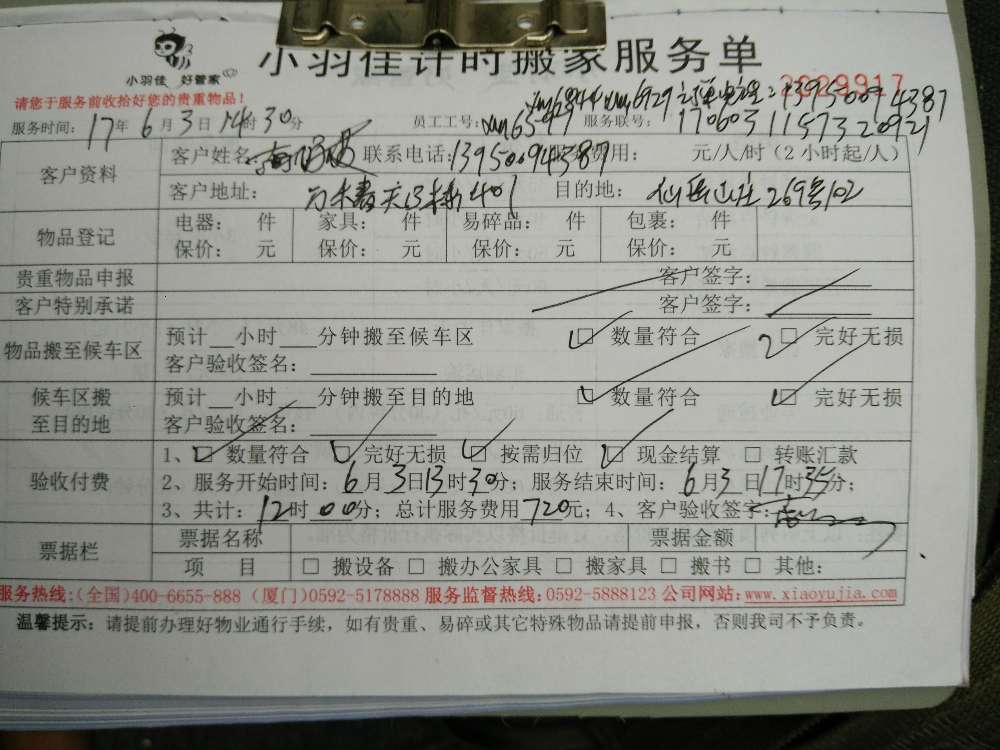 小羽佳计时搬家服务单
小羽佳 好管家
2029917
请您于服务前收拾好您的贵重物品！
xm6844 xm6929 13950094387
服务时间：17年6月3日14时30分 员工工号：xm6549 服务联号：1706031157320921
客户资料
客户姓名 联系电话：13950094387 费用： 元/人/时（2小时起/人）
客户地址： 401 目的地： 仙岳山庄269号102
物品登记
电器： 件 家具： 件 易碎品： 件 包裹： 件
保价： 元 保价： 元 保价： 元 保价： 元
贵重物品申报 客户签字：
客户特别承诺 客户签字：
物品搬至候车区
预计__小时____分钟搬至候车区 □ 数量符合 □ 完好无损
客户验收签名：
候车区搬至目的地
预计__小时____分钟搬至目的地 □ 数量符合 □ 完好无损
客户验收签名：
验收付费
1、□ 数量符合 □ 完好无损 □ 按需归位 □ 现金结算 □ 转账汇款
2、服务开始时间：6月3日13时30分；服务结束时间：6月3日17时35分；
3、共计：12时00分；总计服务费用720元；4、客户验收签字：
票据栏
票据名称 票据金额
项 目 □ 搬设备 □ 搬办公家具 □ 搬家具 □ 搬书 □ 其他：
服务热线：(全国)400-6655-888 (厦门)0592-5178888 服务监督热线：0592-5888123 公司网站：www.xiaoyujia.com
温馨提示：请提前办理好物业通行手续，如有贵重、易碎或其它特殊物品请提前申报，否则我司不予负责。